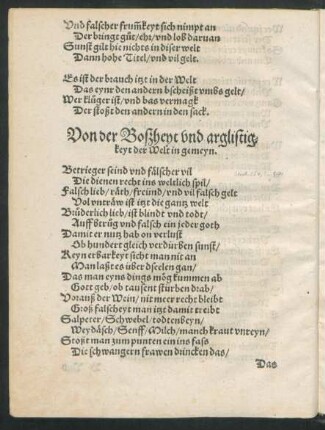 Vnd falscher frum̃keyt sich nimpt an
Der bringt gůt / eht / vnd loß daruan
Sunst gilt hie nichts in diser welt
Dann hohe Titel / vnd vil gelt.
Es ist der brauch itzt in der Welt
Das eynr den andern bscheißt vmbs gelt /
Wer klüger ist / vnd bas vermagk
Der stoßt den andern in den sack.
Von der Boßheyt vnd arglistig-
keyt der Welt in gemeyn.
Betrieger seind vnd fälscher vil
Die dienen recht ins weltlich spil /
Falsch lieb / räth / freünd / vnd vil falsch gelt
Vol vnträw ist itzt die gantz welt
Brüderlich lieb / ist blindt vnd todt /
Auff btrüg vnd falsch ein jeder goth
Damit er nutz hab on verlust
Ob hundert gleich verdürben sunst /
Keyn erbarkeyt sicht man nit an
Man laßt es über dseelen gan /
Das man eyns dings mög kummen ab
Gott geb / ob tausent stürben drab /
Vorauß der Wein / nit meer recht bleibt
Groß falscheyt man itzt damit treibt
Salpeter / Schwebel / todtenbeyn /
Weydäsch / Senff / Milch / manch kraut vnreyn /
Stoßt man zum punten ein ins fass
Die schwangern frawen drincken das /
Das